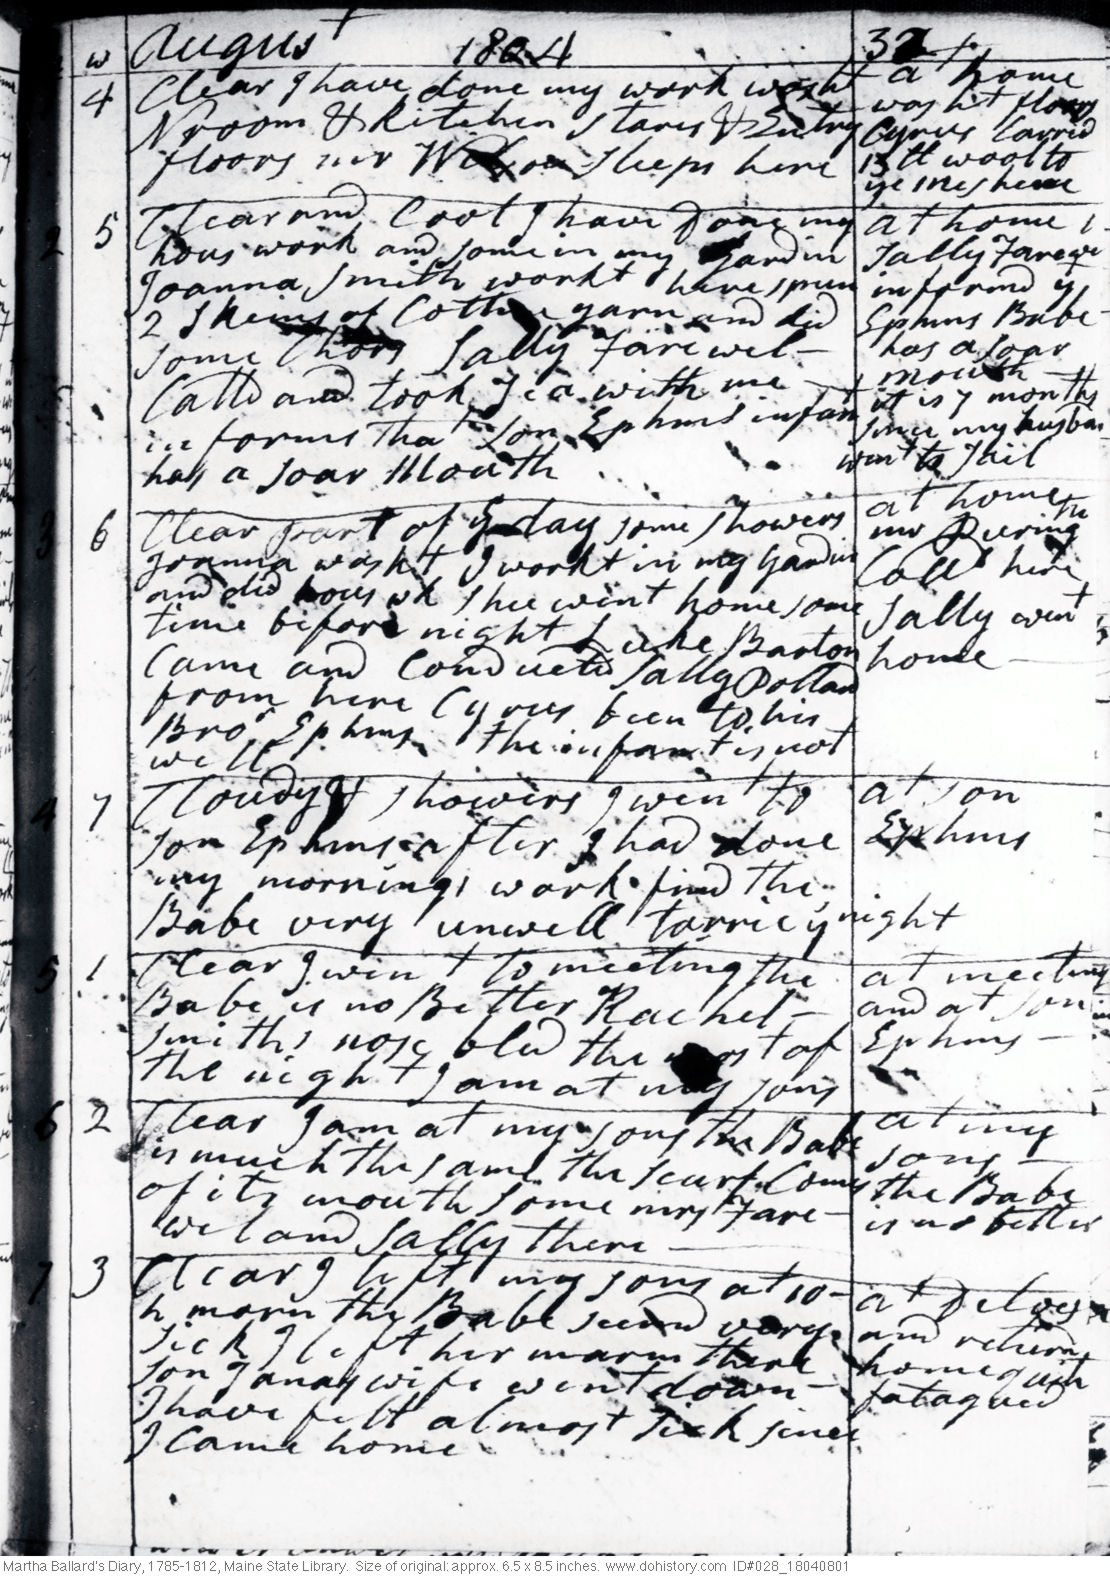 w August 1804 32
1 4 Clear I have done my work washt
N room & kitchen Stares & Entry
floors mr Sleeps here
at home
washt floors
Cyrus Carried
13 lb wool to
ye meshene
2 5 Clear and Cool I have Done my
hous work and some in my Gardin
Joanna Smith workt here spun
2 Skeins of Cotten yarn and did
some Chors Sally Farewel -
Calld and took Tea with me
informs that Son Ephms infant
has a soar Mouth
at home
Sally Farewel
informd yt
Ephms Babe
has a soar
mouth
it is 7 months
since my husban
went to Jail
3 6 Clear part of ye day some showers
Joanna washt I workt in my Gardin
and did hous wk Shee went home some
time before night Luke Barton
Came and Conducted Sally Pollard
from here Cyrus been to his
Bror Ephms the infant is not
well
at home
mr Deering
Calld here
Sally went
home
4 7 Cloudy & showers I went to
son Ephms after I had done
my mornings work find the
Babe very unwell tarrie y night
at son
Ephms
5 1 Clear I went to meeting the
Babe is no Better Rachel -
Smiths nose bled the most of
the night I am at my sons
at meeting
and at son
Ephms -
6 2 Clear I am at my sons the Babe
is much the same the scurf Comes
of its mouth some mrs Fare -
wel and Sally there
at my
sons -
the Babe
is no better
7 3 Clear I left my sons at 10 -
h morn the Babe seemd very
sick I left her marm there
son wife went down -
I have felt almost Sick since
I Came home
at
and returnd
home quite
fatagued
Martha Ballard's Diary, 1785-1812, Maine State Library. Size of original: approx. 6.5 x 8.5 inches. www.dohistory.com ID#028_18040801